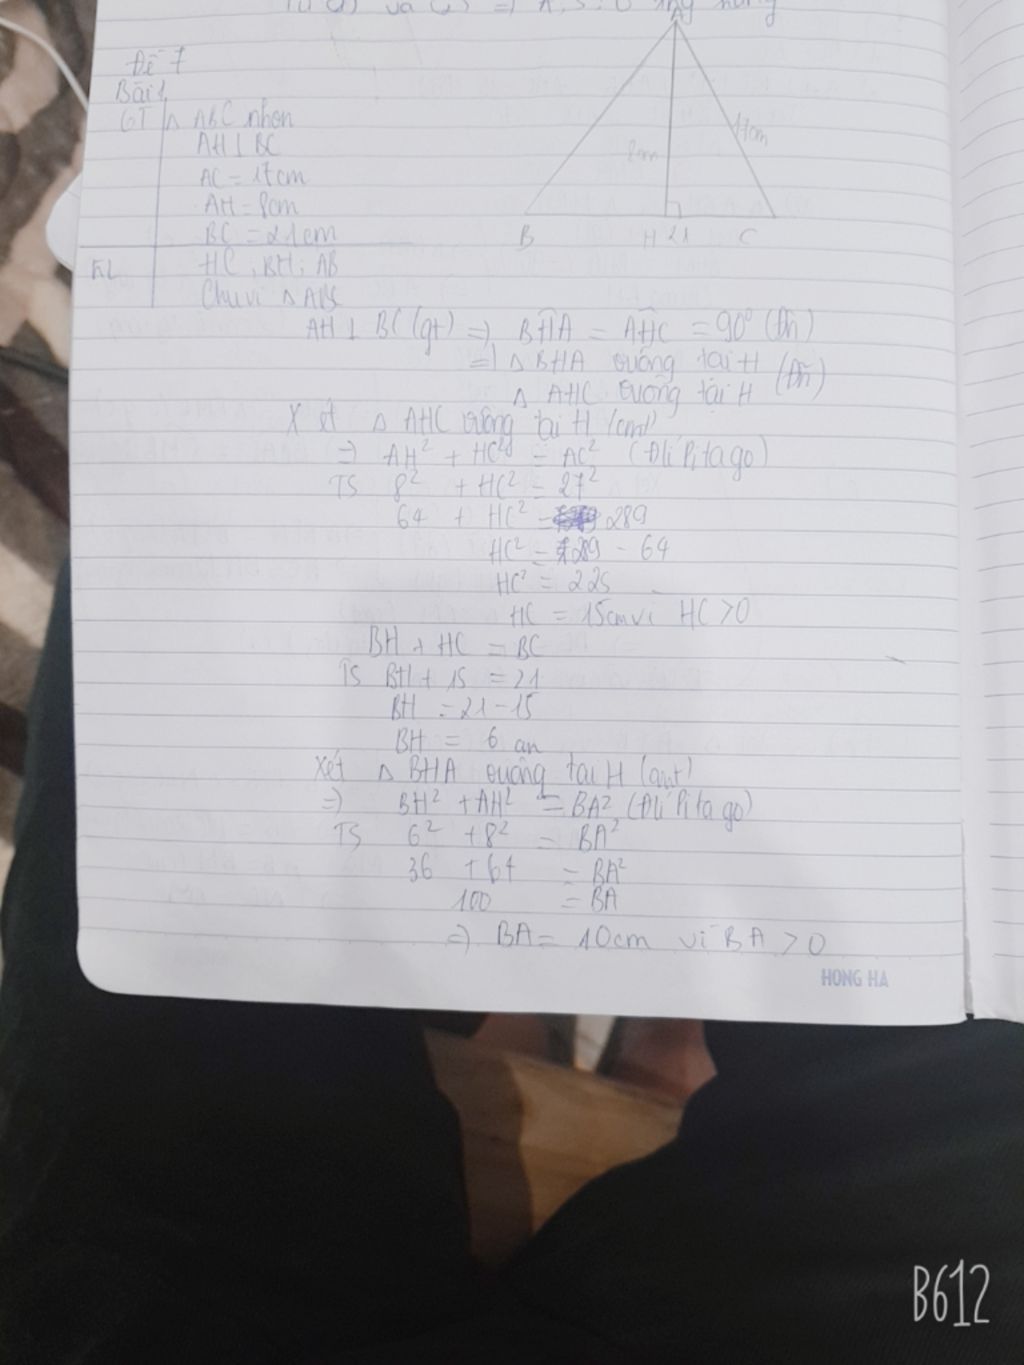 Đề 7
Bài 1
GT Δ ABC nhọn
AH ⊥ BC
AC = 17cm
AH = 8cm
BC = 21cm
KL HC, BH, AB
Chu vi Δ ABC
A
8cm
17cm
B H 21 C
AH ⊥ BC (gt) => BHA = AHC = 90° (Đn)
=> Δ BHA vuông tại H (Đn)
Δ AHC vuông tại H
Xét Δ AHC vuông tại H (cmt)
=> AH² + HC² = AC² (Đlí Pitago)
TS 8² + HC² = 27²
64 + HC² = 289
HC² = 289 - 64
HC² = 225
HC = 15cm vì HC > 0
BH + HC = BC
TS BH + 15 = 21
BH = 21 - 15
BH = 6 cm
Xét Δ BHA vuông tại H (cmt)
=> BH² + AH² = BA² (Đlí Pitago)
TS 6² + 8² = BA²
36 + 64 = BA²
100 = BA
=> BA = 10cm vì BA > 0
HONG HA
B612